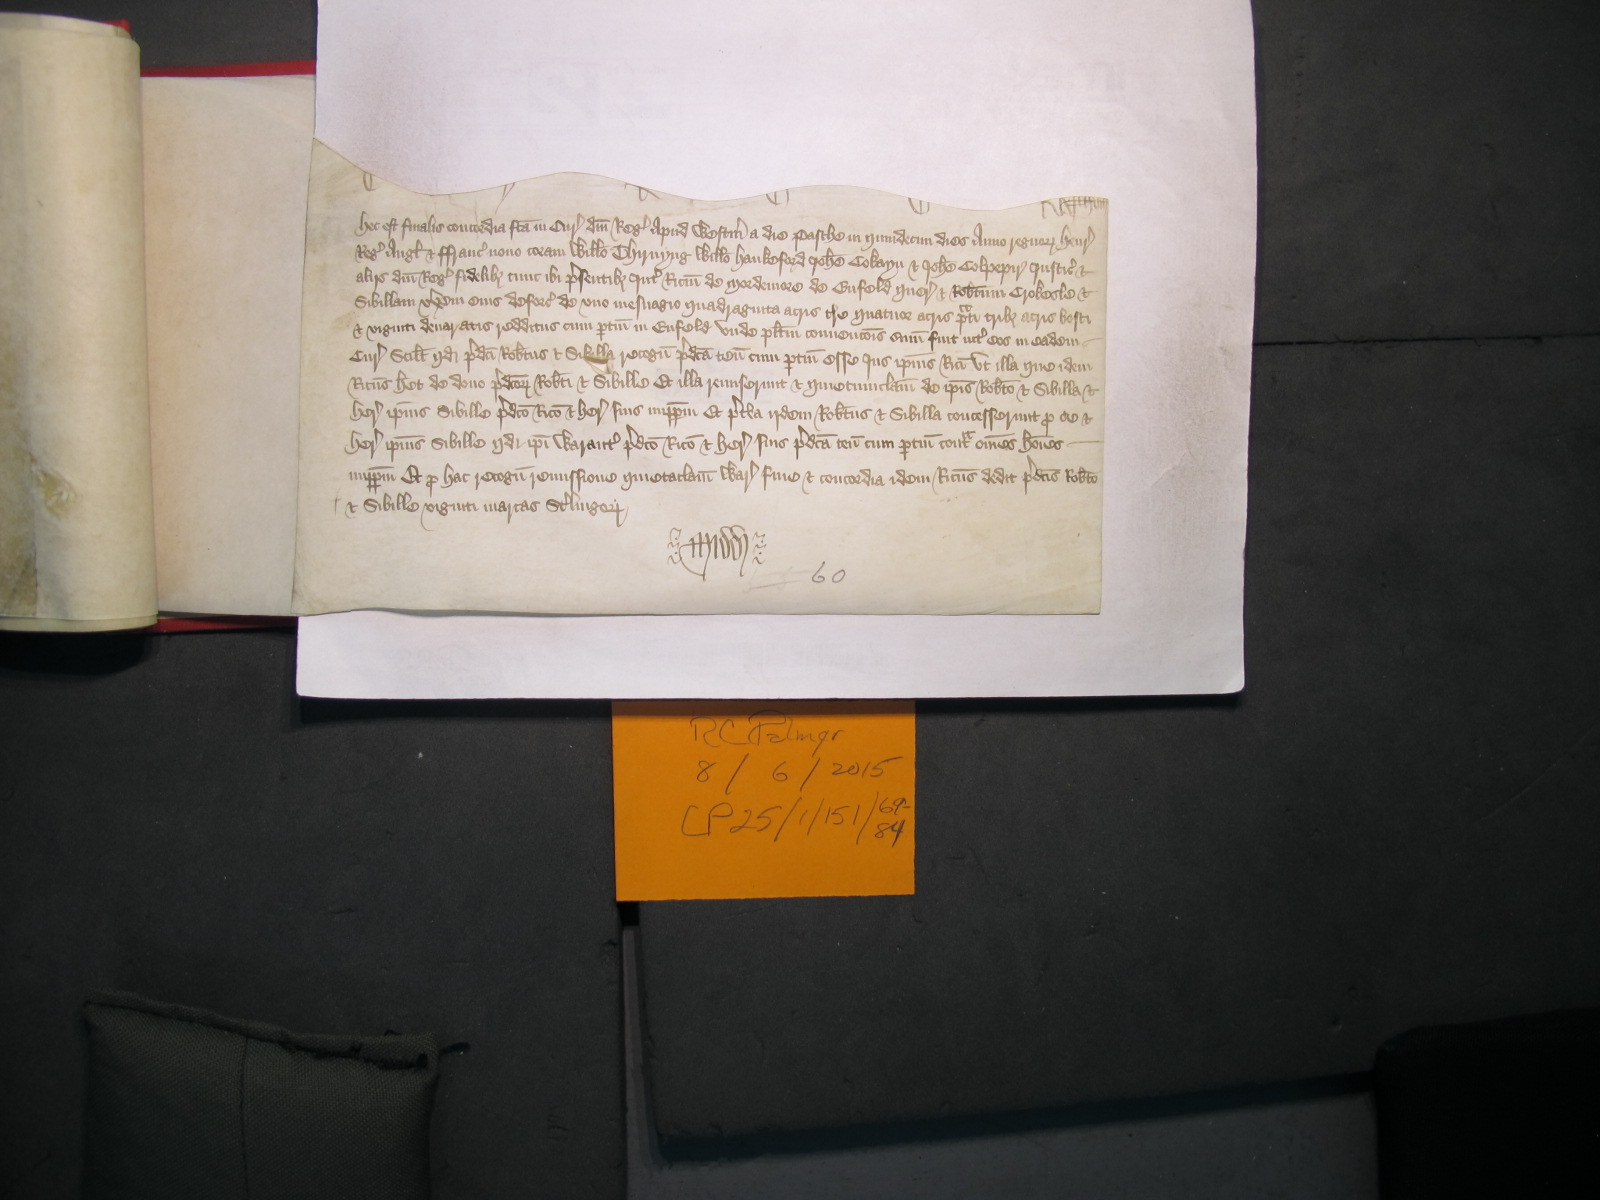 Hec est finalis concordia fc̄a in Cur' dn̄i Reg' Apud Westm̄ a die Pasche in quindecim dies Anno regnorꝝ Henr'
Reg' Angl' ⁊ ffranc' nono coram Will̄o Thirnyng Will̄o Hankeford Joh̄e Cokayn ⁊ Joh̄e Colpepir Justic' ⁊
aliis dn̄i Reg' fidelibꝫ tunc ibi p̄sentibꝫ Int' Ricm̄ de Mordemore de Enfeld quer' ⁊ Rob̄tum Crokesle ⁊
Sibillam vx̄em eius deforc' de vno mesuagio quadraginta acris t're quatuor acris p̄ti tribꝫ acris bosci
⁊ viginti denaratis redditus cum ptin̄ in Enfeld Vnde pl̄itm conuencōis sum̄ fuit int' eos in eadem
Cur' Scil̄t qd' p̄dc̄i Rob̄tus ⁊ Sibilla recogn̄ p̄dc̄a ten̄ cum ptin̄ esse Jus ip̄ius Ric̄i Vt illa que idem
Ric̄us h̄et de dono p̄dc̄orꝝ Rob̄ti ⁊ Sibille Et illa remiserunt ⁊ quietumclam̄ de ip̄is Rob̄to ⁊ Sibilla ⁊
her' ip̄ius Sibille p̄dc̄o Ric̄o ⁊ her' suis imppm̄ Et p̄t'ea iidem Rob̄tus ⁊ Sibilla concesserunt p se ⁊
her' ip̄ius Sibille qd' ip̄i Warant' p̄dc̄o Ric̄o ⁊ her' suis p̄dc̄a ten̄ cum ptin̄ cont^a om̄es ho̅i̅es
imppm̄ Et p hac recogn̄ remissione quietaclam̄ War' fine ⁊ concordia idem Ric̄us dedit p̄dc̄is Rob̄to
⁊ Sibille viginti marcas St'lingorꝝ
Midd'
60
RC Palmer
8 / 6 / 2015
CP25/1/151/69-84